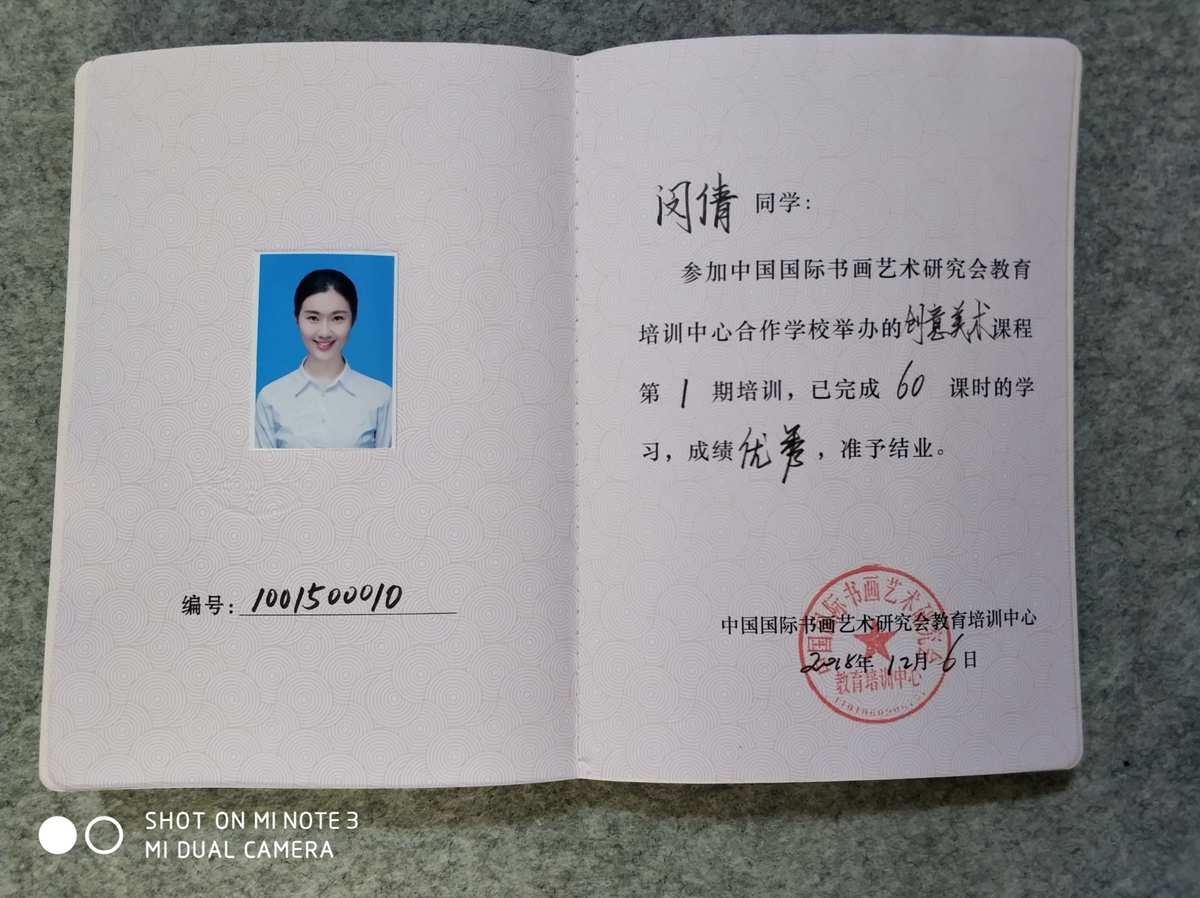 编号: 1001500010
闵倩 同学:
参加中国国际书画艺术研究会教育
培训中心合作学校举办的创意美术课程
第 1 期培训，已完成 60 课时的学
习，成绩优秀，准予结业。
中国国际书画艺术研究会教育培训中心
2018年 12月 6日
中国国际书画艺术研究会
教育培训中心
SHOT ON MI NOTE 3
MI DUAL CAMERA